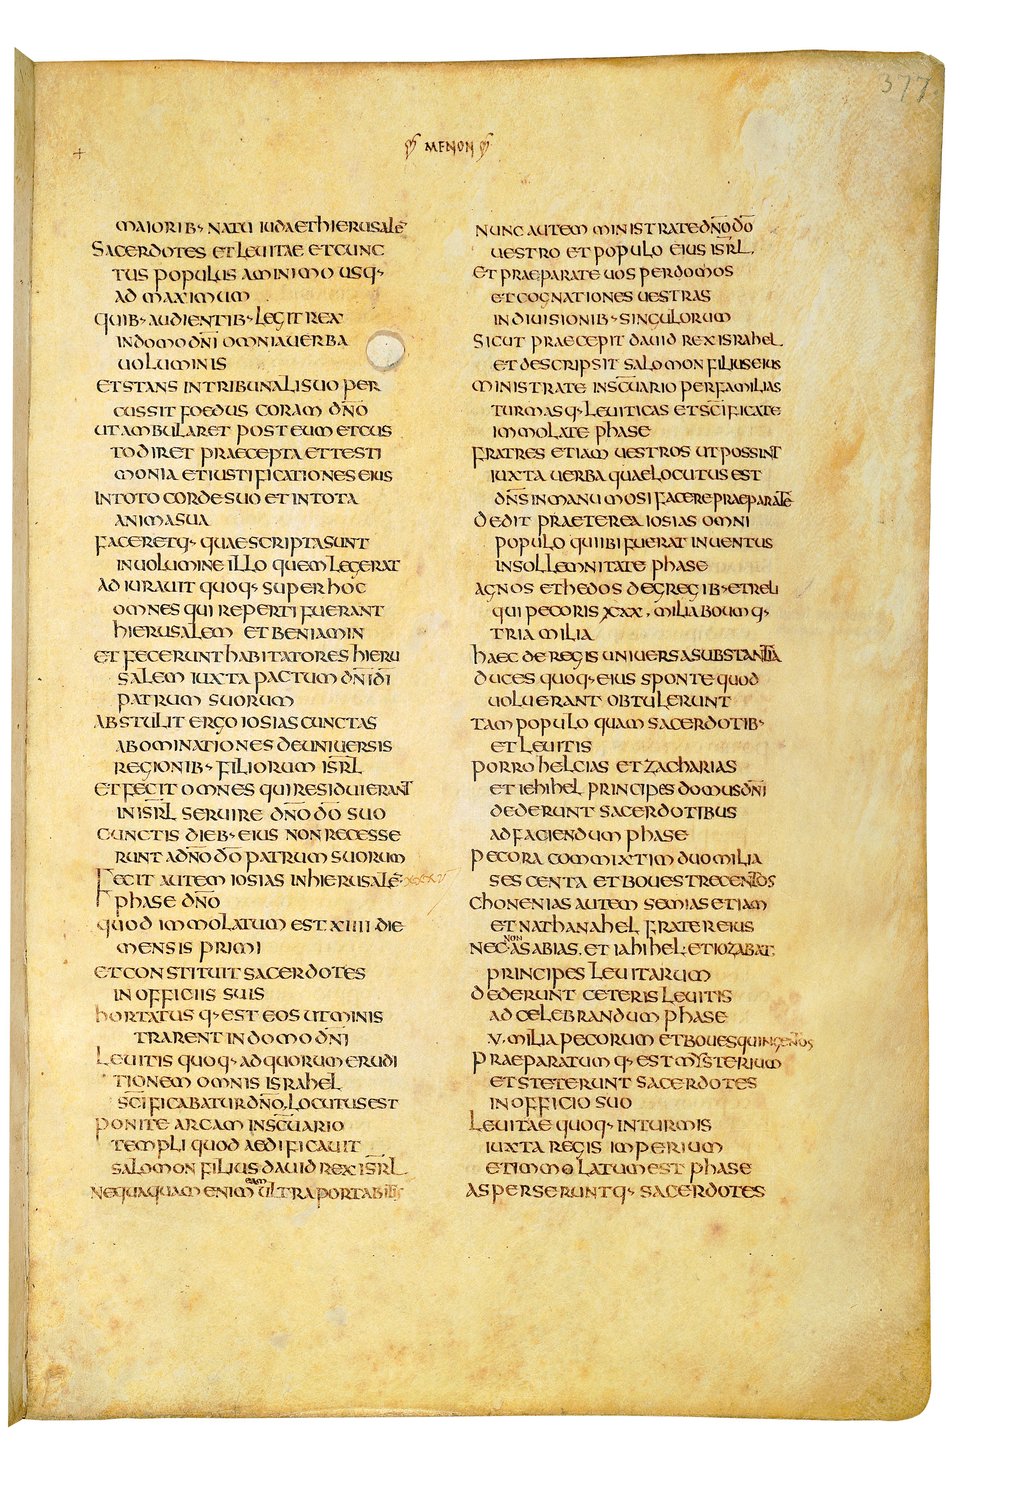 377
MENON
MAIORIB· NATU IUDAETHIERUSALĒ
SACERDOTES ET LEUITAE ET CUNC
TUS POPULUS A MINIMO USQ·
AD MAXIMUM
QUIB· AUDIENTIB· LEGIT REX
IN DOMO DN̄I OMNIA UERBA
UOLUMINIS
ET STANS IN TRIBUNALI SUO PER
CUSSIT FOEDUS CORAM DN̄O
UT AMBULARET POST EUM ET CUS
TODIRET PRAECEPTA ET TESTI
MONIA ET IUSTIFICATIONES EIUS
IN TOTO CORDE SUO ET IN TOTA
ANIMA SUA
FACERETQ· QUAE SCRIPTA SUNT
IN UOLUMINE ILLO QUEM LEGERAT
ADIURAUIT QUOQ· SUPER HOC
OMNES QUI REPERTI FUERANT
HIERUSALEM ET BENIAMIN
ET FECERUNT HABITATORES HIERU
SALEM IUXTA PACTUM DN̄I DĪ
PATRUM SUORUM
ABSTULIT ERGO IOSIAS CUNCTAS
ABOMINATIONES DE UNIUERSIS
REGIONIB· FILIORUM ISR̄L
ET FECIT OMNES QUI RESIDUI ERANT
IN ISR̄L SERUIRE DN̄O DŌ SUO
CUNCTIS DIEB· EIUS NON RECESSE
RUNT A DN̄O DŌ PATRUM SUORUM
FECIT AUTEM IOSIAS IN HIERUSALĒ·
PHASE DN̄O
QUOD IMMOLATUM EST XIIII DIE
MENSIS PRIMI
ET CONSTITUIT SACERDOTES
IN OFFICIIS SUIS
HORTATUS Q· EST EOS UT MINIS
TRARENT IN DOMO DN̄I
LEUITIS QUOQ· AD QUORUM ERUDI
TIONEM OMNIS ISRAHEL
SC̄IFICABATUR DN̄O, LOCUTUS EST
PONITE ARCAM IN SC̄UARIO
TEMPLI QUOD AEDIFICAUIT
SALOMON FILIUS DAUID REX ISR̄L
NEQUAQUAM ENIM EAM ULTRA PORTABITIS
NUNC AUTEM MINISTRATE DN̄O DŌ
UESTRO ET POPULO EIUS ISR̄L,
ET PRAEPARATE UOS PER DOMOS
ET COGNATIONES UESTRAS
IN DIUISIONIB· SINGULORUM
SICUT PRAECEPIT DAUID REX ISRAHEL
ET DESCRIPSIT SALOMON FILIUS EIUS
MINISTRATE IN SC̄UARIO PER FAMILIAS
TURMAS Q· LEUITICAS ET SC̄IFICATE
IMMOLATE PHASE
FRATRES ETIAM UESTROS UT POSSINT
IUXTA UERBA QUAE LOCUTUS EST
DN̄S IN MANU MOSI FACERE PRAEPARATĒ
DEDIT PRAETEREA IOSIAS OMNI
POPULO QUI IBI FUERAT INUENTUS
IN SOLLEMNITATE PHASE
AGNOS ET HEDOS DE GREGIB· ET RELI
QUI PECORIS XXX, MILIA BOUM Q·
TRIA MILIA
HAEC DE REGIS UNIUERSA SUBSTANTIA
DUCES QUOQ· EIUS SPONTE QUOD
UOLUERANT OBTULERUNT
TAM POPULO QUAM SACERDOTIB·
ET LEUITIS
PORRO HELCIAS ET ZACHARIAS
ET IEHIHEL PRINCIPES DOMUS DN̄I
DEDERUNT SACERDOTIBUS
AD FACIENDUM PHASE
PECORA COMMIXTIM DUO MILIA
SESCENTA ET BOUES TRECENTOS
CHONENIAS AUTEM SEMIAS ETIAM
ET NATHANAHEL FRATER EIUS
NEC NON ASABIAS, ET IAHIHEL· ET IOZABAT,
PRINCIPES LEUITARUM
DEDERUNT CETERIS LEUITIS
AD CELEBRANDUM PHASE
V. MILIA PECORUM ET BOUES QUINGENTOS
PRAEPARATUM Q· EST MYSTERIUM
ET STETERUNT SACERDOTES
IN OFFICIO SUO
LEUITAE QUOQ· IN TURMIS
IUXTA REGIS IMPERIUM
ET IMMOLATUM EST PHASE
ASPERSERUNTQ· SACERDOTES